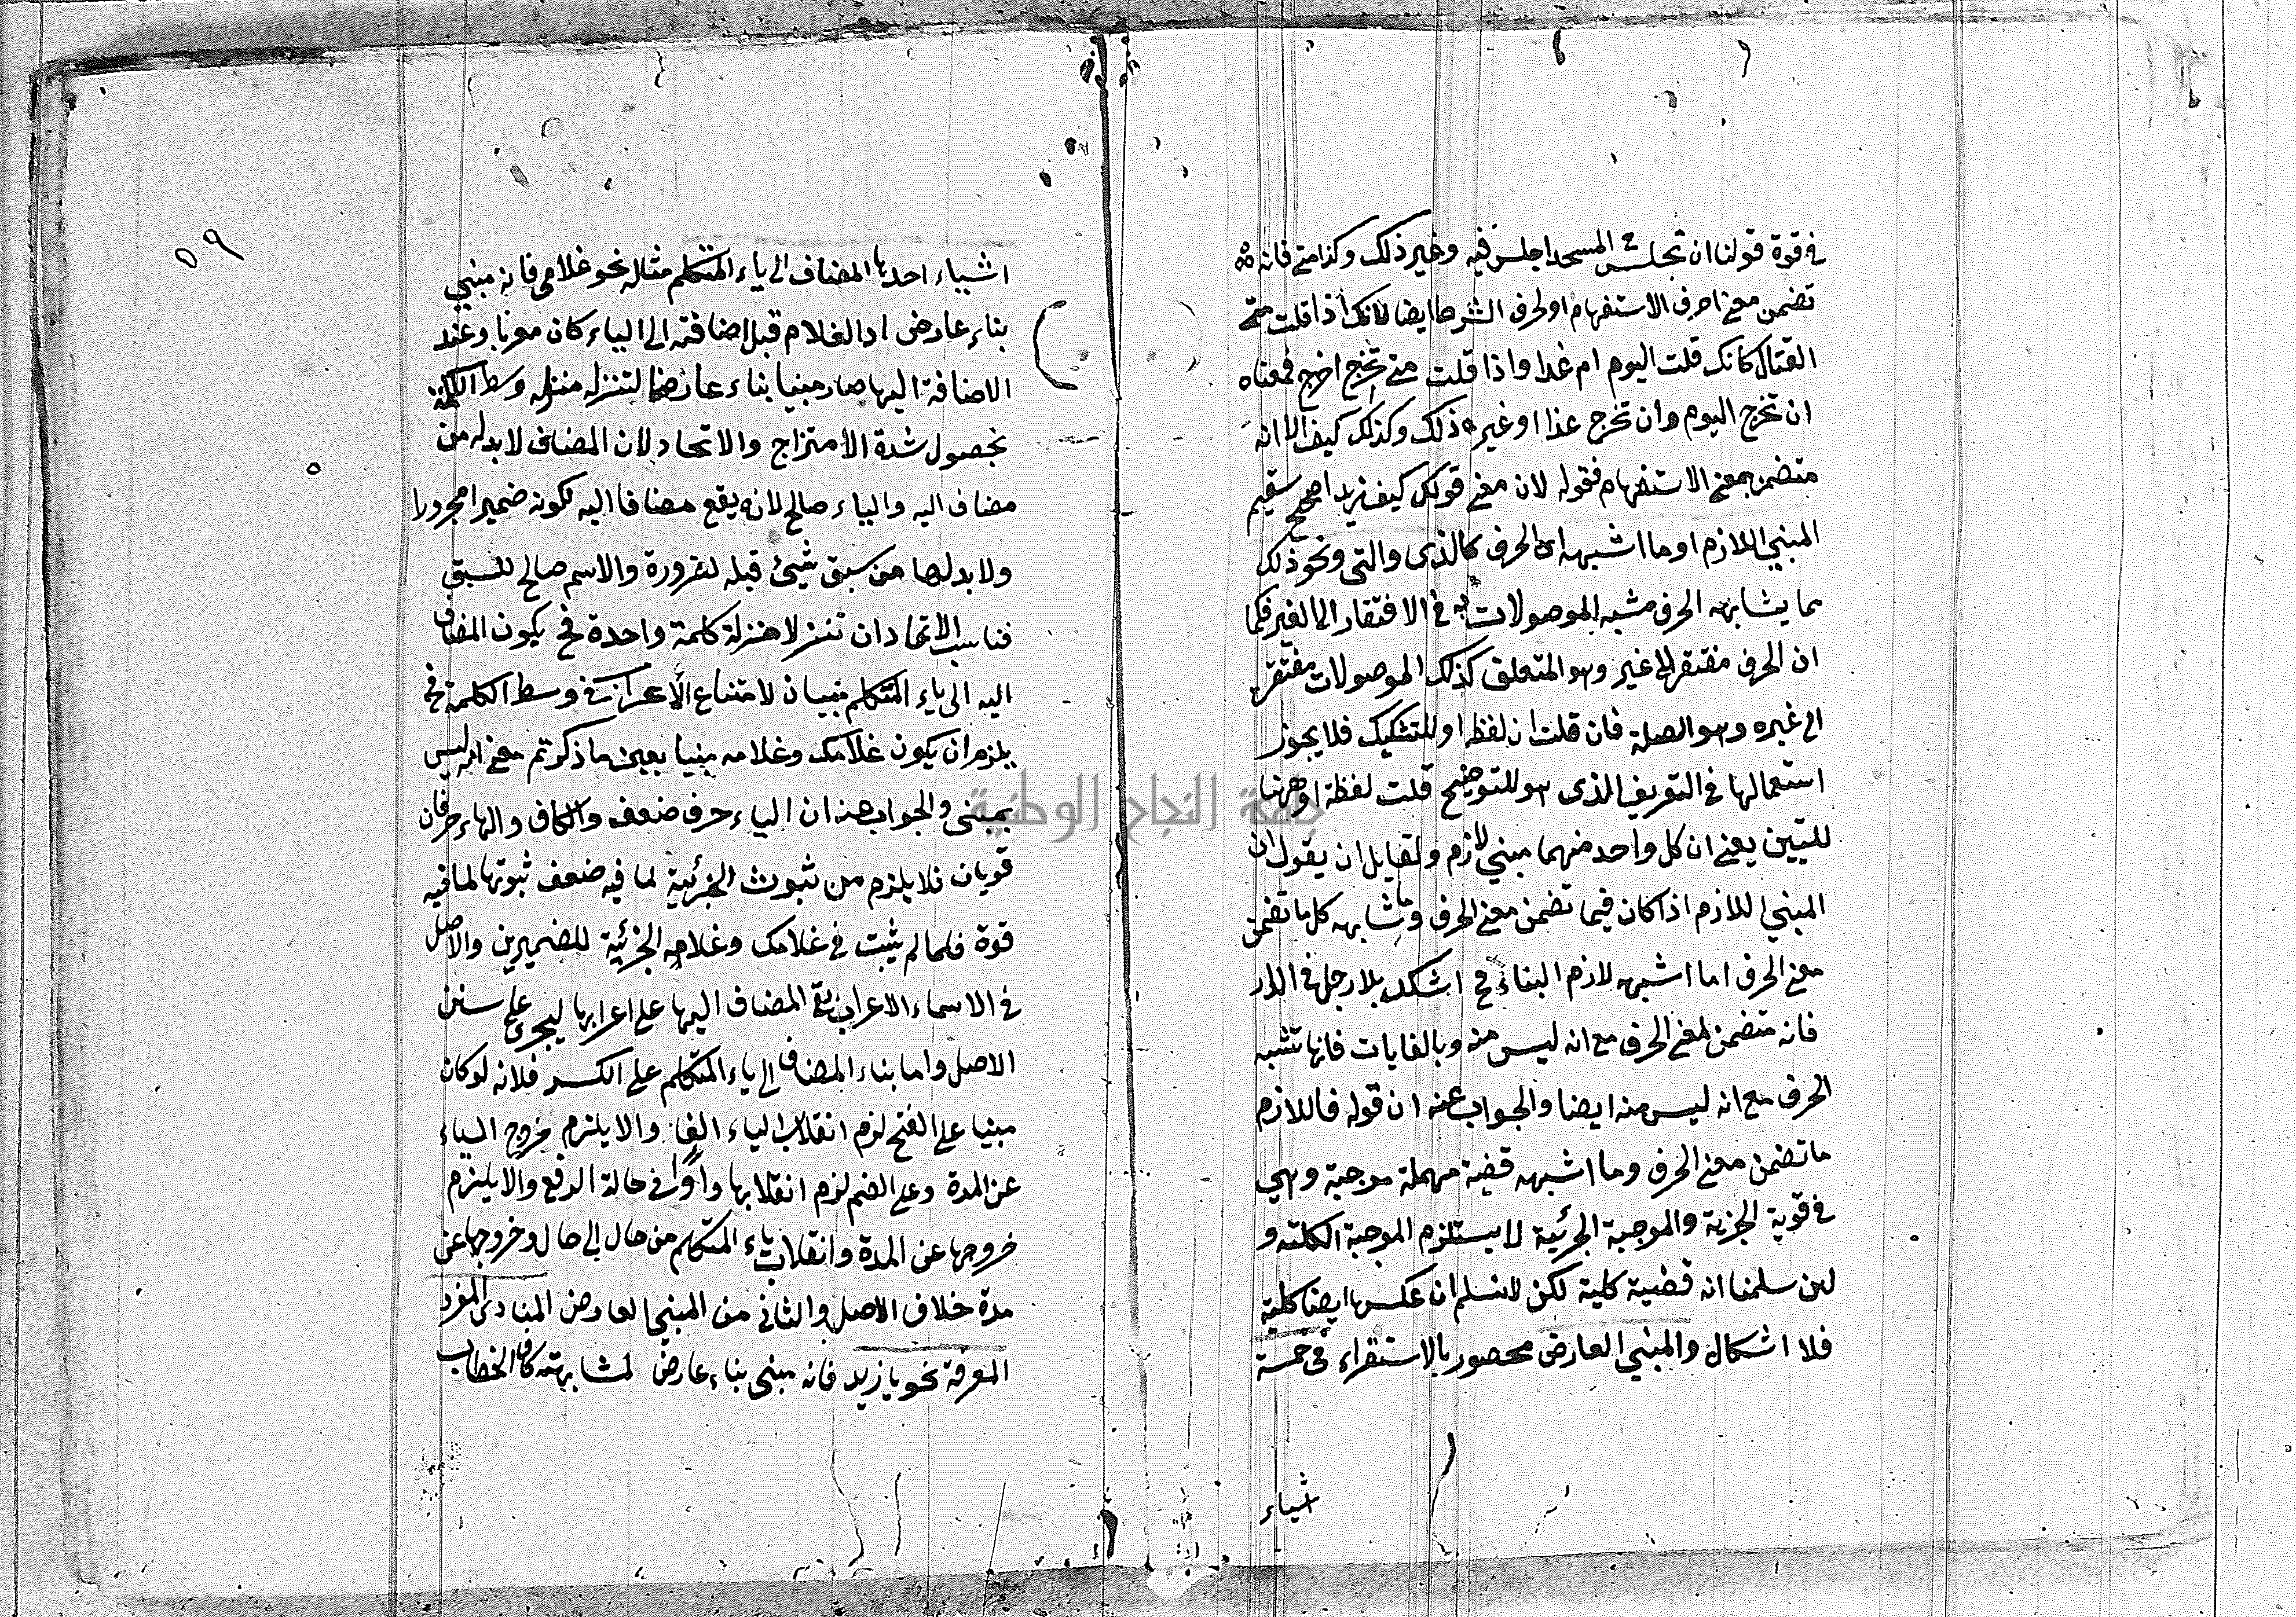 في قوة قولنا ان تجلس في المسجد اجلس فيه وغير ذلك وكذا متى فانه
تضمن معنى حرف الاستفهام او لحرف الشرط ايضا لانك اذا قلت متى
القتال كانك قلت اليوم ام غدا واذا قلت متى تخرج اخرج فمعناه
ان تخرج اليوم وان تخرج غدا او غيره ذلك وكذلك كيف الا انه
متضمن بمعنى الاستفهام فقوله لان معنى قولك كيف زيد اصحيح سقيم
المبني اللازم او ما اشبهه اى الحرف كالذى والتى ونحو ذلك
مما يشابهه الحرف مشبه الموصولات به في الافتقار الى الغير فكما
ان الحرف مفتقر الى غير وهو المتعلق كذلك الموصولات مفتقرة
الى غيره وهو الصلة فان قلت ان لفظ او للتشكيك فلا يجوز
استعمالها في التعريف الذى هو للتوضيح قلت لفظة او ههنا
للتبيين يعنى ان كل واحد منهما مبني لازم ولقايل ان يقول ان
المبني اللازم اذا كان فيما تضمن معنى الحرف وما شابهه كل ما تضمن
معنى الحرف اما اشبهه لازم البناء فح اشكل بلا رجل في الدار
فانه متضمن لمعنى الحرف مع انه ليس منه وبالغايات فانها تشبه
الحرف مع انه ليس منه ايضا والجواب عنه ان قوله فاللازم
ما تضمن معنى الحرف وما اشبهه قضية مهملة موجبة وهي
في قوية الجزية والموجبة الجزئية لا يستلزم الموجبة الكلته و
لين سلمنا انه قضية كلية لكن لا نسلم ان عكسها ايضا كلية
فلا اشكال والمبني العارض محصور بالاستقراء في خمسة
اشياء
٥٩
اشياء احدها المضاف الى ياء المتكلم مثاله نحو غلامى فانه مبني
بناء عارض اذ الغلام قبل اضافته الى الياء كان معربا وعند
الاضافة اليها صار مبنيا بناء عارضا لتنزله منزله وسط الكلمة
بحصول شدة الامتزاج والاتحاد لان المضاف لابد له من
مضاف اليه والياء صالح لان يقع مضافا اليه لكونه ضميرا مجرورا
ولا بد لها من سبق شيئ قبله لضرورة والاسم صالح للسبق
فناسب الاتحاد ان تنزلا منزلة كلمة واحدة فح يكون المضاف
اليه الى ياء المتكلم مبنيان لامتناع الاعراب في وسط الكلمة فح
يلزم ان يكون غلامك وغلامه مبنيا بعين ما ذكرتم معنى انه ليس
بمبنى والجواب عنه ان الياء حرف ضعف والكاف والهاء حرفان
قويان فلا يلزم من ثبوت الجزئية لما فيه ضعف ثبوتها لما فيه
قوة فلما لم يثبت في غلامك وغلامه الجزئية للضميرين والاصل
في الاسماء الاعراب بقى المضاف اليها على اعرابها ليجرى على سنن
الاصل واما بناء المضاف الى ياء المتكلم على الكسر فلانه لو كان
مبنيا على الفتح لزم انقلاب الياء الفا والا يلزم خروج الياء
عن المدة وعلى الضم لزم انقلابها واوا في حالة الرفع والا يلزم
خروجها عن المدة وانقلاب ياء المتكلم من حال الى حال وخروجها عن
مدة خلاف الاصل والثانى من المبنى العارض المنادى المفرد
المعرفة نحو يا زيد فانه مبنى بناء عارض لمشابهته كاف الخطاب
جامعة النجاح الوطنية